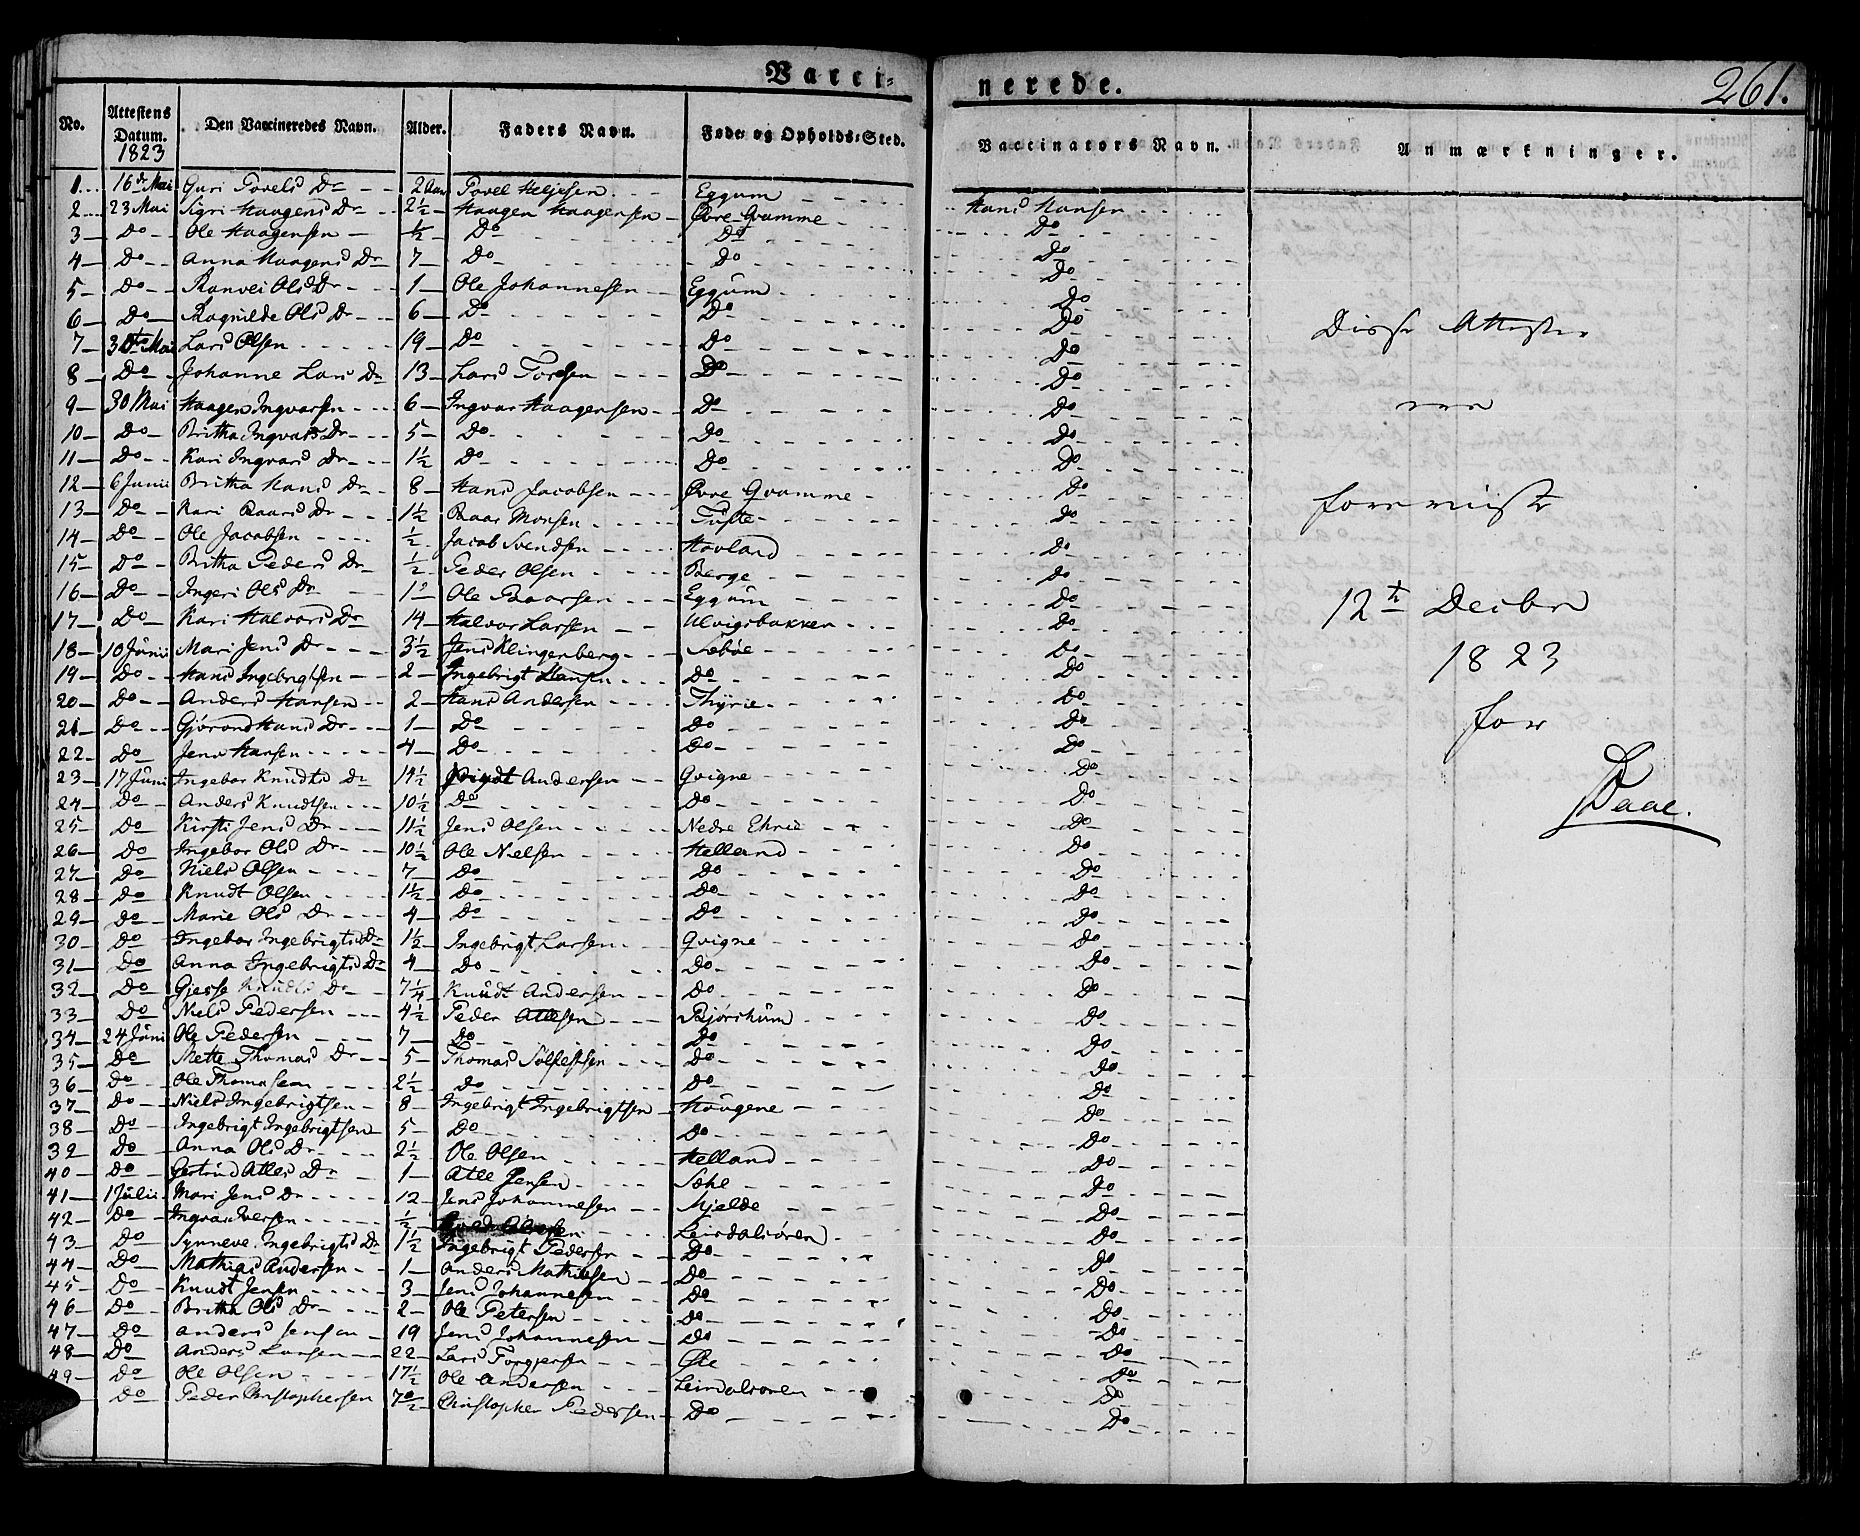 Vacci-nerede.
261.
No. Attestens Datum. 1823 Den Vaccineredes Navn. Alder. Faders Navn. Føde- og Opholds-Sted. Vaccinators Navn. Anmærkninger.
1 16de Mai Guri Povels Dr 2 Povel Helgesen Eggum
2 23 Mai Sigri Haagens Dr 2½ Haagen Haagensen Øvre Qvamme Hans Hansen
3 Do Ole Haagensen ½ Do Do Do
4 Do Anna Haagens Dr 7 Do Do Do
5 Do Ranvei Ols Dr 1 Ole Johannesen Eggum Do
6 Do Ragnilde Ols Dr 6 Do Do Do
7 30te Mai Lars Olsen 19 Do Do Do
8 Do Johanne Lars Dr 13 Lars Do Do
9 30 Mai Haagen Ingvarsen 6 Ingvar Haagensen Do Do
10 Do Britha Ingvars Dr 5 Do Do Do
11 Do Kari Ingvars Dr 1½ Do Do Do
12 6 Junii Britha Hans Dr 8 Hans Jacobsen Øvre Qvamme Do
13 Do Kari Baars Dr 1½ Baar Monsen Tufte Do
14 Do Ole Jacobsen ½ Jacob Svendsen Hovland Do
15 Do Britha Peders Dr ½ Peder Olsen Berge Do
16 Do Ingeri Ols Dr Ole Baarsen Eggum Do
17 Do Kari Halvors Dr 14 Halvor Larsen Ulvigsbakken Do
18 10 Junii Mari Jens Dr 3½ Jens Klingenberg Sebøe Do
19 Do Hans Ingebrigtsen 2 Ingebrigt Hansen Do Do
20 Do Anders Hansen 2 Hans Andersen Thyrie Do
21 Do Gjørond Hans Dr 1 Do Do Do
22 Do Jens Hansen 4 Do Do Do
23 17 Juni Ingebor Knudts Dr 14½ Andersen Qvigne Do
24 Do Anders Knudtsen 10½ Do Do Do
25 Do Kirsti Jens Dr 11½ Jens Olsen Nedre Ehrie Do
26 Do Ingebor Ols Dr 10½ Ole Nielsen Helland Do
27 Do Niels Olsen 7 Do Do Do
28 Do Knudt Olsen 1½ Do Do Do
29 Do Marie Ols Dr 4 Do Do Do
30 Do Ingebor Ingebrigts Dr 1½ Ingebrigt Larsen Qvigne Do
31 Do Anna Ingebrigts Dr 4 Do Do Do
32 Do Gjesse Knudts Dr 7¼ Knudt Andersen Do Do
33 Do Niels Pedersen 4½ Peder Atlesen Bjørkum Do
34 24 Juni Ole Pedersen 7 Do Do Do
35 Do Mette Thomas Dr 5 Thomas Solfestsen Do Do
36 Do Ole Thomasen 2½ Do Do Do
37 Do Niels Ingebrigtsen 8 Ingebrigt Ingebrigtsen Hougene Do
38 Do Ingebrigt Ingebrigtsen 5 Do Do Do
39 Do Anna Ols Dr 2½ Ole Olsen Helland Do
40 Do Gertrud Atles Dr 1 Atle Jensen Do
41 1 Julii Mari Jens Dr 12 Jens Johannesen Mjelde Do
42 Do Ingvar Iversen ½ Leirdalsøren Do
43 Do Synneve Ingebrigts Dr 1½ Ingebrigt Pedersen Do Do
44 Do Mathias Andersen 1 Anders Mathiesen Do Do
45 Do Knudt Jensen 3 Jens Johannesen Do Do
46 Do Britha Ols Dr 2 Ole Petersen Do Do
47 Do Anders Jensen 19 Jens Johannesen Do Do
48 Do Anders Larsen 22 Lars Torgersen Øie Do
49 Do Ole Olsen 17½ Ole Andersen Leirdalsøren Do
Do Peder Christophersen 7½ Christopher Pedersen Do Do
Disse Attester
ere
foreviist
12te Decbr
1823
for
Daae.